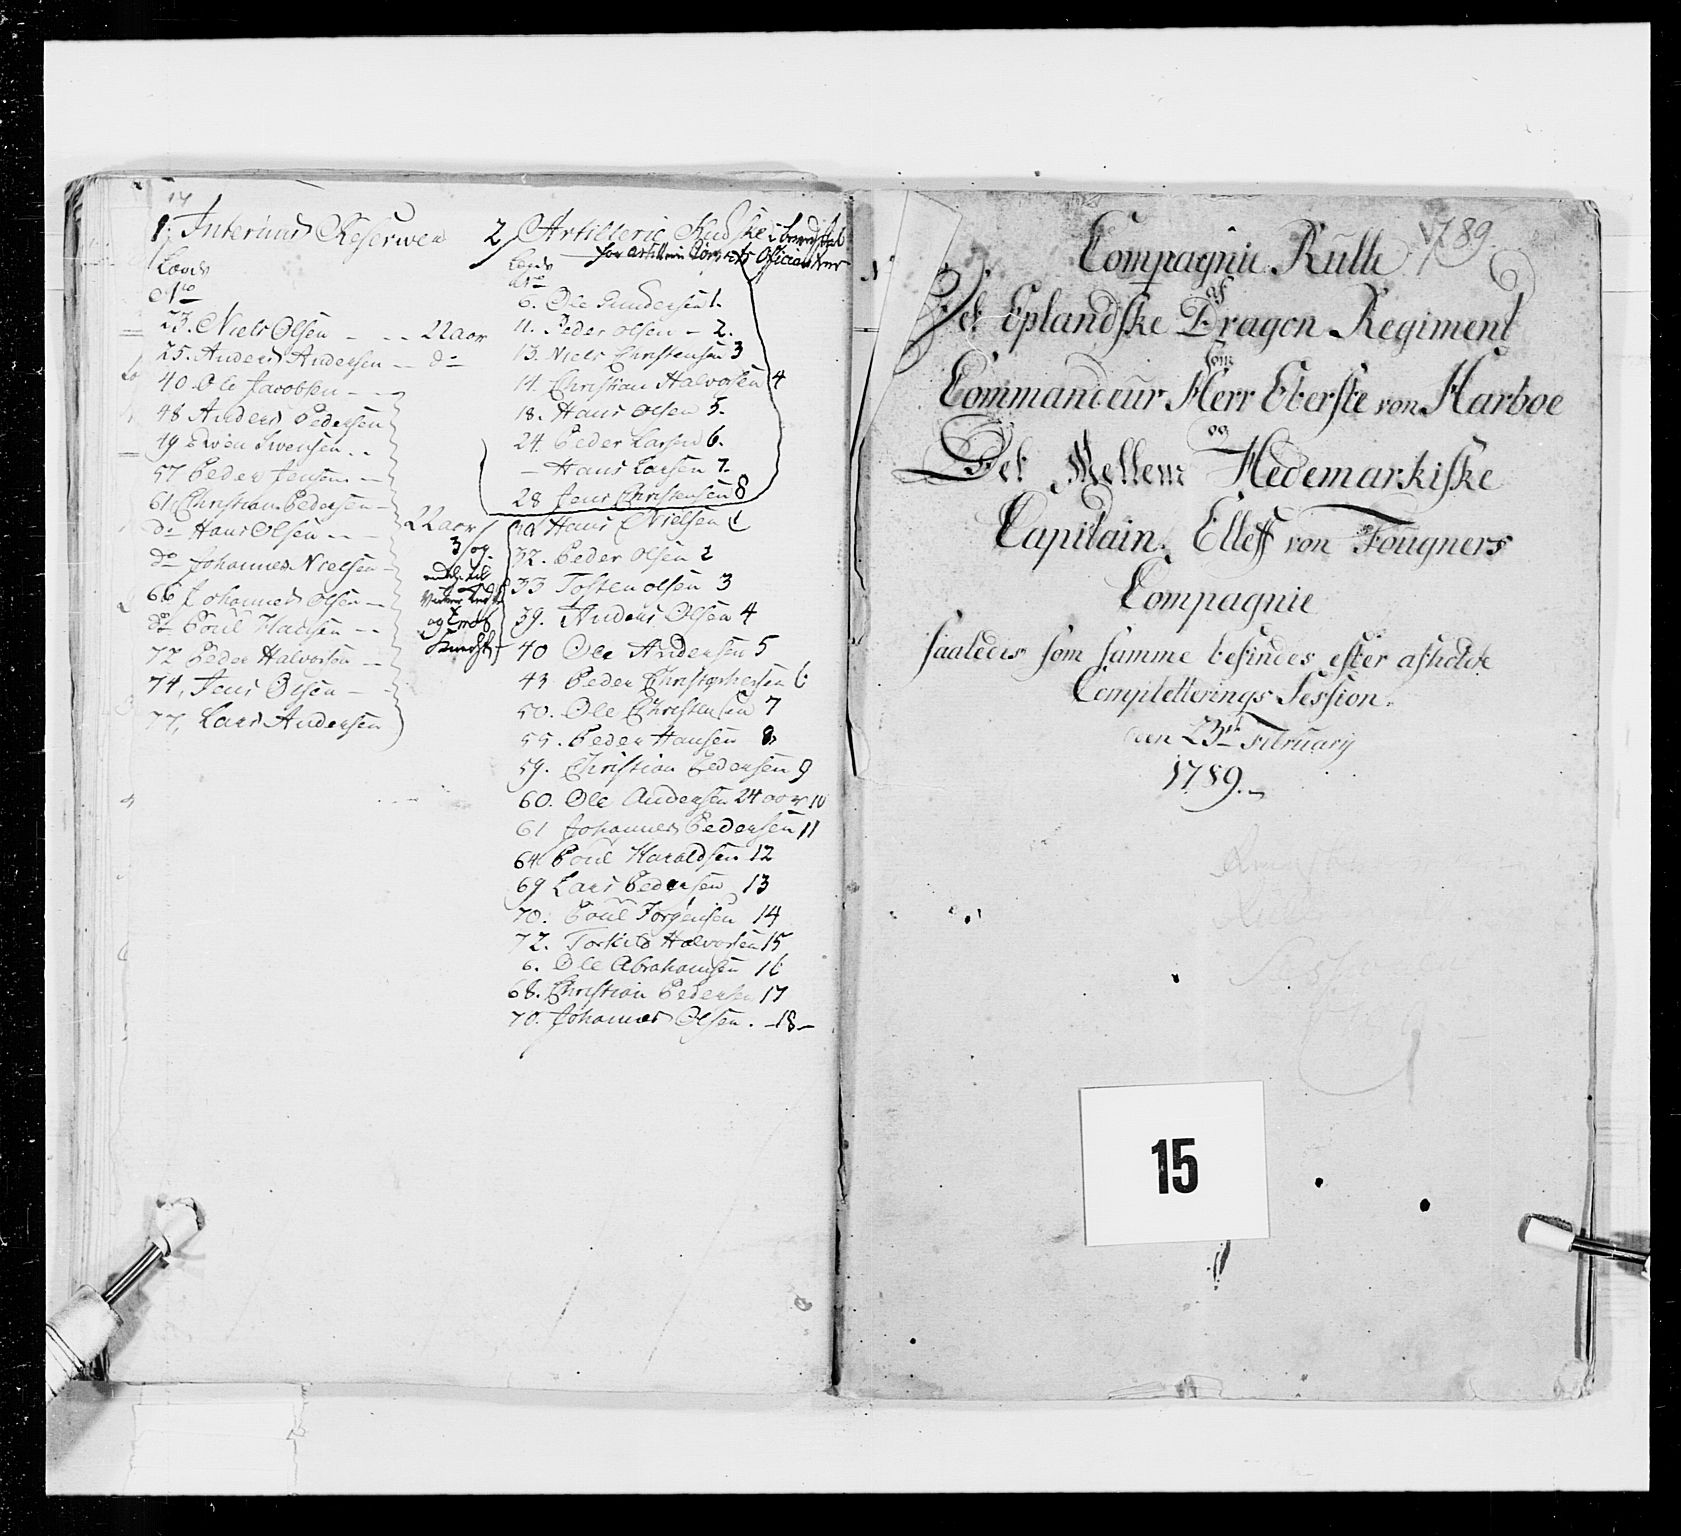 1. Interims Reserven
Lands
No
23. Niels Olsen - - - 22 aar
25. Anders Andersen - - do
40. Ole Jacobsen - - -
48 Anders Pedersen
49 Swen Swensen - -
57 Peder Jensen - -
61. Christian Pedersen -
do Hans Olsen - - -
do Johannes Nielsen -
66 Johannes Olsen -
do Poul Hansen - -
72 Peder Halvorsen -
74, Jens Olsen -
77, Lars Andersen
22 aar
3/ og
og Tros
Knegte
2, Artillerie Kudske i beredskab
for Artillerie Corpsets Officianter
Lands
No
6. Ole Andersen 1.
11. Peder Olsen - 2.
13. Niels Christensen 3
14. Christian Halvorsen 4
18. Hans Olsen 5.
24. Peder Larsen 6.
- Hans Larsen 7.
28 Jens Christensen 8
Hans Nielsen 1
32. Peder Olsen 2
33 Tosten Olsen 3
39. Anders Olsen 4
40 Ole Andersen 5
43 Peder Christophersen 6
50. Ole Christensen 7
55. Peder Hansen 8.
59. Christian Pedersen 9
60. Ole Andersen 24 aar 10
61 Johannes Pedersen 11
64 Poul Haraldsen 12
69 Lars Pedersen 13
70. Poul Jørgensen 14
72. Torkild Halvorsen 15
6. Ole Abrahamsen 16
68. Christian Pedersen 17
70. Johannes Olsen. -18-
1789.
Compagnie Rulle
af
Det Oplandske Dragon Regiment
som
Commandeur Herr Oberste von Harboe
og
Det Mellem Hedemarkiske
Capitain Elleff von Fougners
Compagnie
saaledes som samme befindes efter afholdte
Completterings Session.
den 23de February
1789.-
15